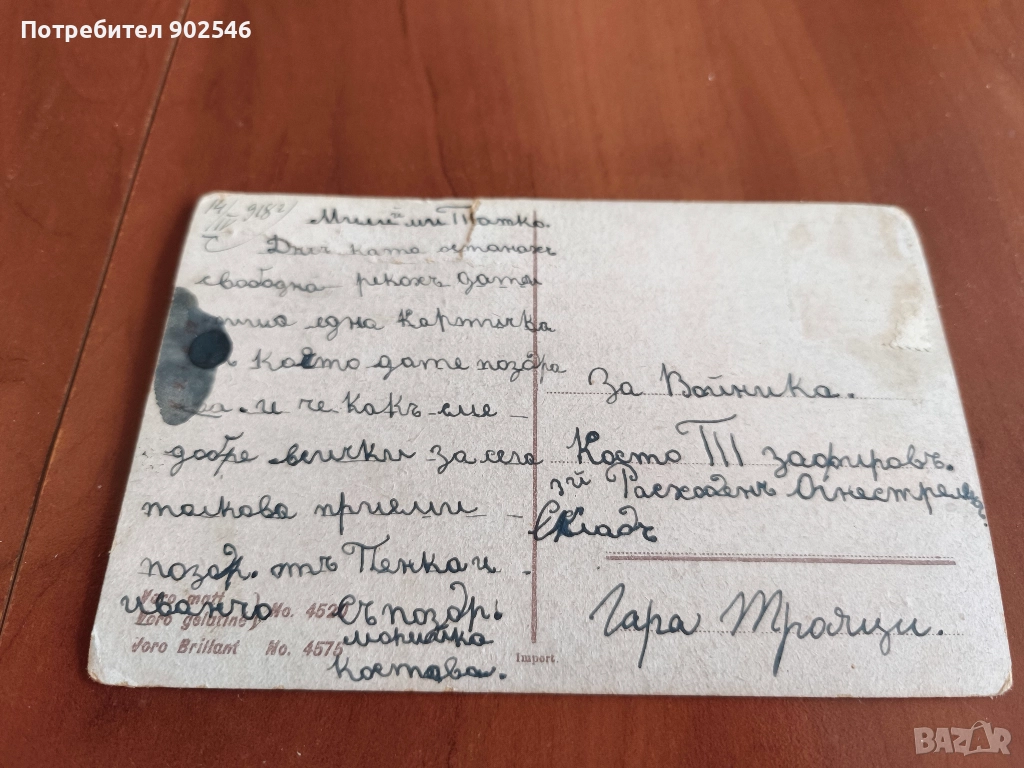 Потребител 902546
14/III 918 г/
Милий ми Татко.
Днесъ ката останахъ
свободна рекохъ дати
пиша една Картичка
съ Която дате поздра
ва. и че Какъ сме
добре всички за сега
толкова приеми
поздр. отъ Пенка и
иванчо съ поздръ
марийка
Костова.
Joro matt
No. 452
Joro gelatine
Joro Brillant No. 4575
Import.
За Войника.
Косто П зафировъ.
3й Расходенъ Огнестреленъ
Складъ
Гара Трояци.
BAZAR